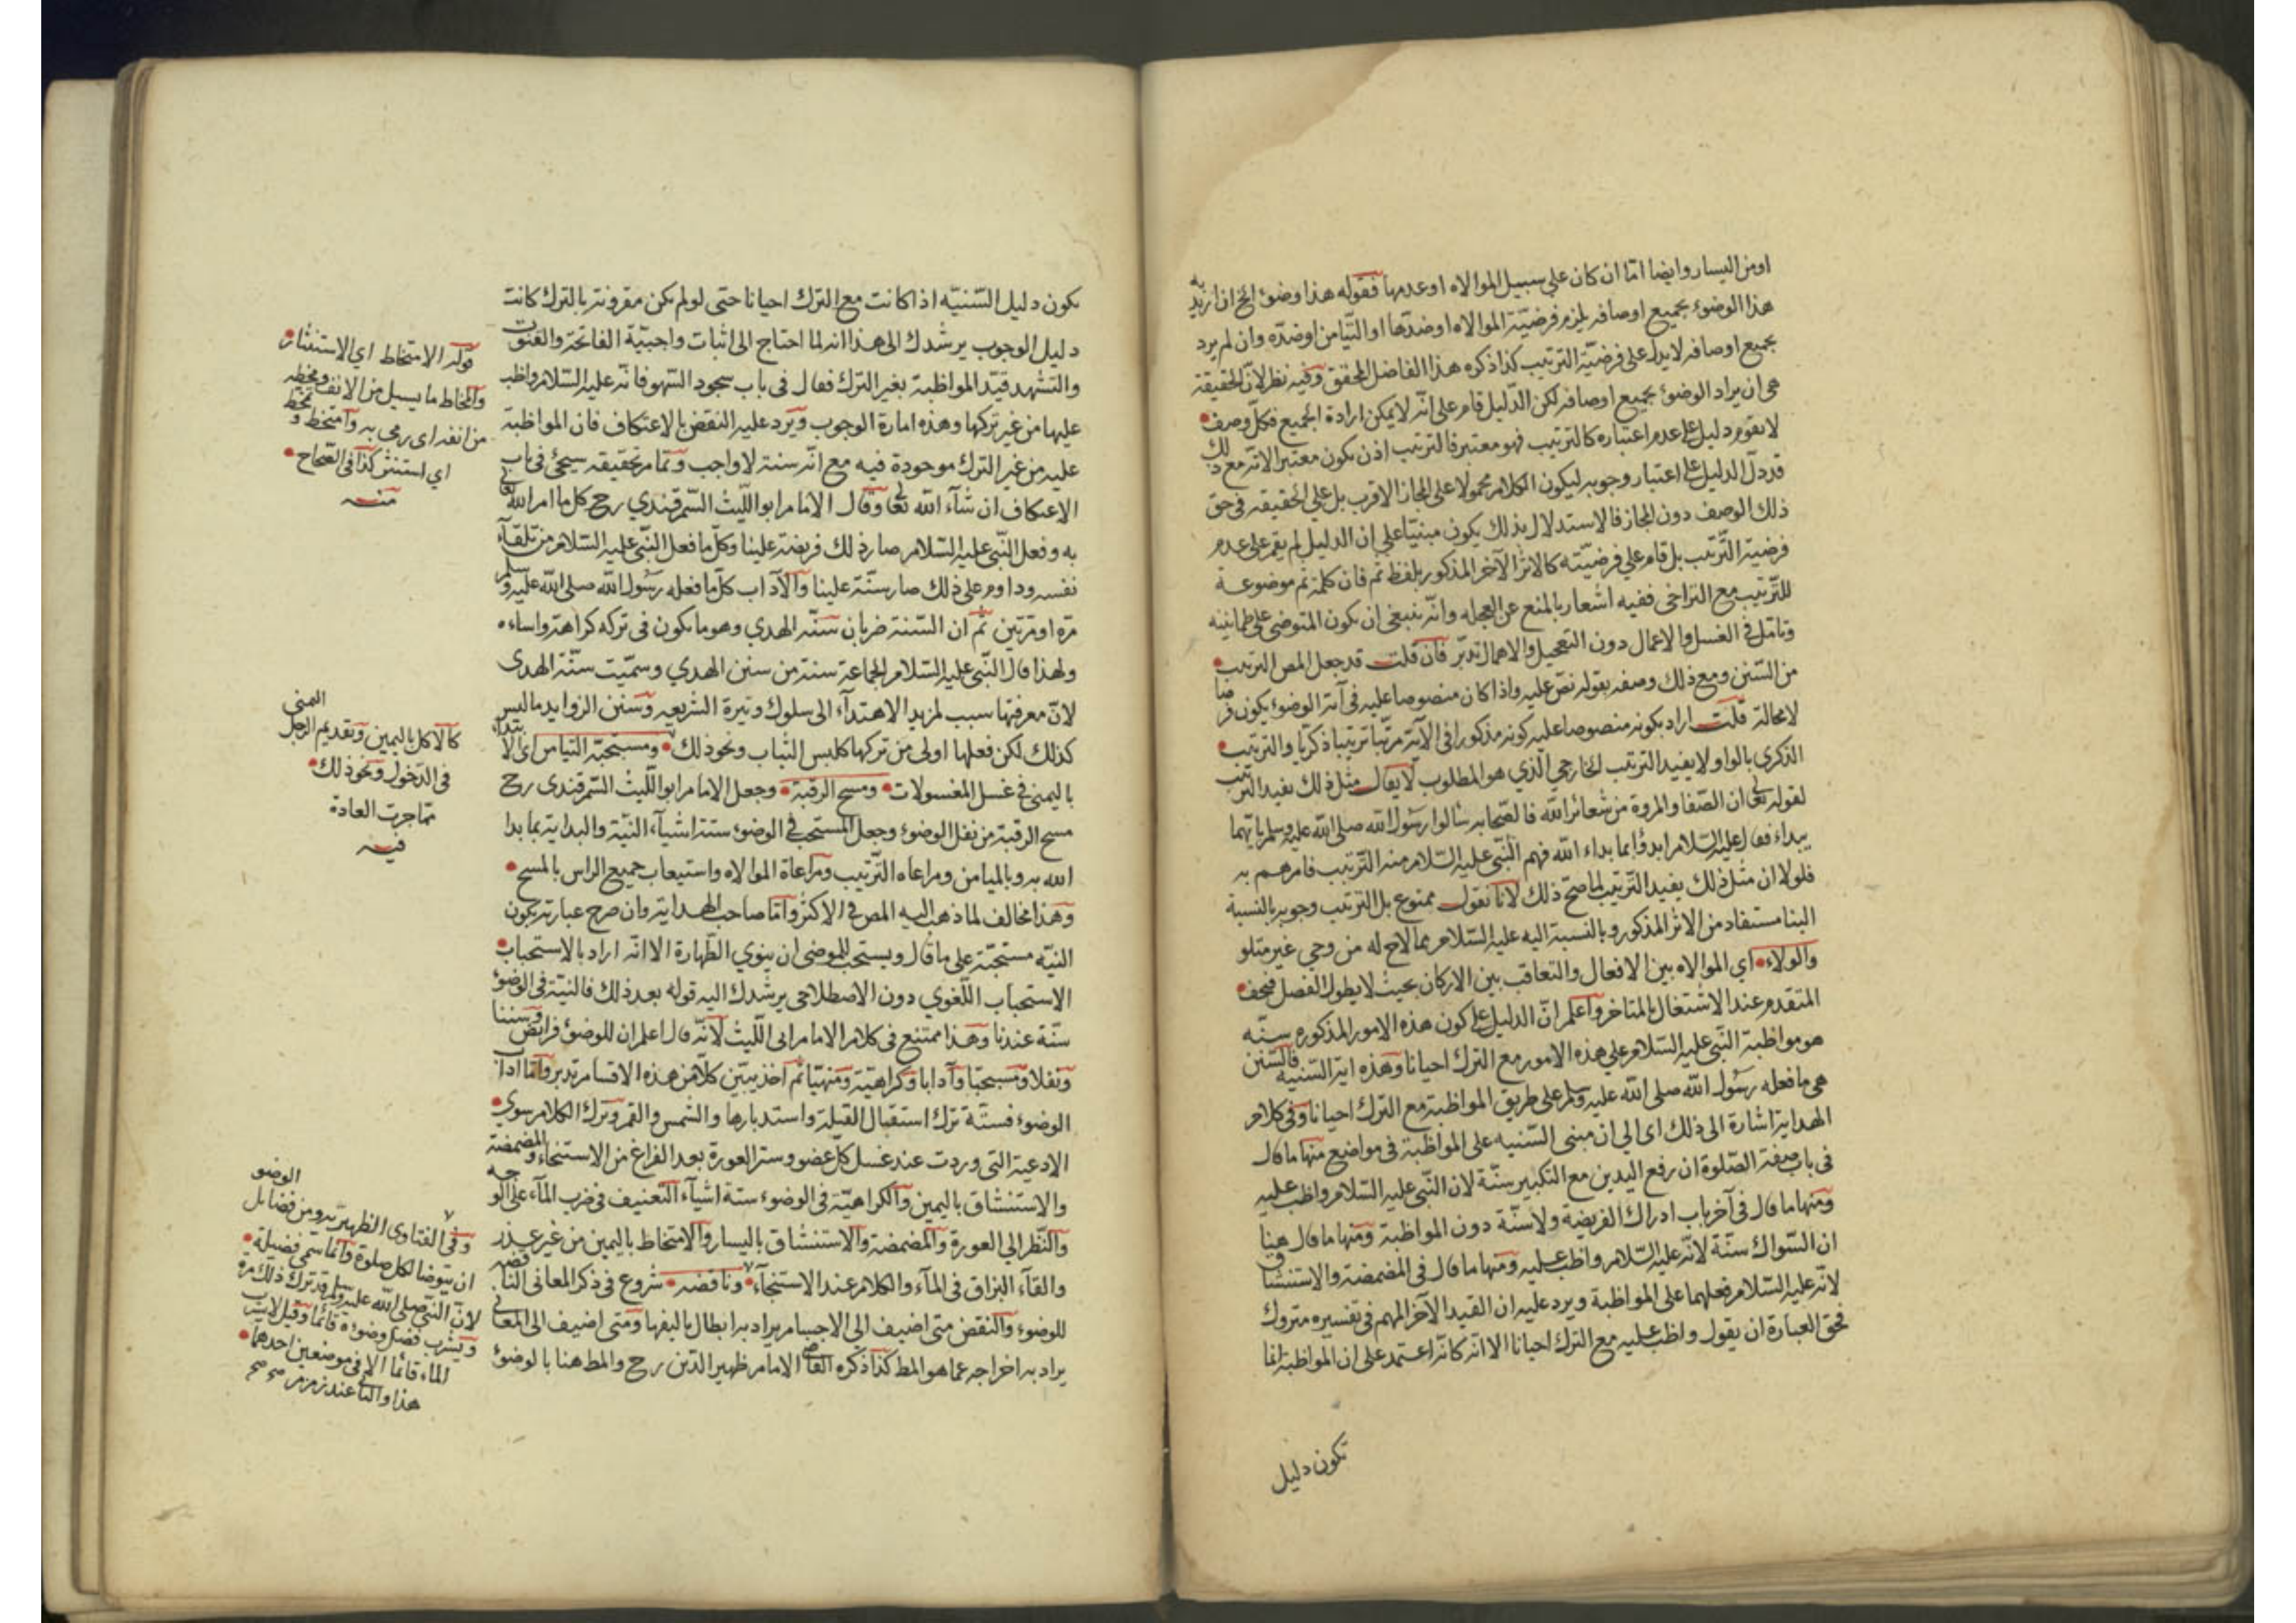 اومن اليسار وايضا امّا ان كان على سبيل الموالاه اوعدمها فقوله هذا وضوء الخ ان اريد به
هذا الوضوء بجميع اوصافه يلزم فرضيّة الموالاه اوضدّها اوالتيامن اوضدّه وان لم يرد
بجميع اوصافه لايدل على فرضيّة الترتيب كذا ذكره هذا الفاضل المحقق وفيه نظر لانّ الحقيقة
هى ان يراد الوضوء بجميع اوصافه لكن الدّليل قام على انّه لايمكن ارادة الجميع فكلّ وصف
لايقوم دليل على عدم اعتباره كالترتيب فهو معتبر فالترتيب اذن يكون معتبرا لانّه مع ذلك
قد دلّ الدليل على اعتبار وجوبه ليكون الكلام محمولا على المجاز الاقرب بل على الحقيقه فى حق
ذلك الوصف دون المجاز فالاستدلال بذلك يكون مبنيّا على ان الدليل لم يقم على عدم
فرضية الترتيب بل قام على فرضيّته كالاثر الآخر المذكور بلفظ ثم فان كلمة ثم موضوعة
للترّتيب مع التراخى ففيه اشعار بالمنع عن العجله وانّه ينبغى ان يكون المتوضى على طمانينه
وتامّل فى الغسل والاعمال دون التعجيل والاهمال تدبّر فان قلت قد جعل المص الترتيب
من السّنن ومع ذلك وصفه بقوله نصّ عليه واذا كان منصوصا عليه فى آية الوضوء يكون فرضا
لامحالة قلت اراد بكونه منصوصا عليه كونه مذكورا فى الآية مرتّبا ترتيبا ذكريّا والترتيب
الذكرى بالواو لايفيد الترتيب الخارجى الّذي هو المطلوب لايقال مثل ذلك يفيد الترتيب
لقوله تعالى ان الصّفا والمروة من شعائر الله فالصّحابه سالوا رسول الله صلى الله عليه وسلم بايّهما
يبداء فقال عليه السّلام ابدؤا بما بداء الله فهم النّبى عليه السّلام منه التّرتيب فامرهم به
فلولا ان مثل ذلك يفيد التّرتيب لما صحّ ذلك لانا نقول ممنوع بل الترتيب وجوبه بالنسبة
الينا مستفاد من الاثر المذكور وبالنسبة اليه عليه السّلام بما لاح له من وحي غير متلو
والولاء اي الموالاه بين الافعال والتعاقب بين الاركان بحيث لايطول الفصل فيجف
المتقدم عند الاشتغال بالمتاخر واعلم انّ الدليل على كون هذه الامور المذكوره سنّه
هو مواظبة النّبى عليه السّلام على هذه الامور مع الترك احيانا وهذه اية السّنيه فالسّنن
هى ما فعله رسول الله صلى الله عليه وسلم على طريق المواظبة مع الترك احيانا وفى كلام
الهداية اشارة الى ذلك اى الى ان مبنى السّنيه على المواظبة فى مواضيع منها ما قال
فى باب صفة الصّلوة ان رفع اليدين مع التكبير سنّة لان النّبى عليه السّلام واظب عليه
ومنها ما قال فى آخر باب ادراك الفريضة ولاسنّة دون المواظبة ومنها ما قال هينا
ان السّواك سنّة لانّه عليه السّلام واظب عليه ومنها ما قال فى المضمضة والاستنشاق
لانّه عليه السّلام فعلهما على المواظبة ويرد عليه ان القيد الآخر المهم فى تفسيره متروك
فحق العبارة ان يقول واظب عليه مع الترك احيانا الا انّه كانّه اعتمد على ان المواظبة انما
تكون دليل
يكون دليل السّنيّه اذا كانت مع الترك احيانا حتى لولم يكن مقرونة بالترك كانت
دليل الوجوب يرشدك الى هذا انه لما احتاج الى اثبات واجبيّة الفاتحة والقنوت
والتشهد قيّد المواظبة بغير الترك فقال فى باب سجود السّهو فانّه عليه السّلام واظب
عليها من غير تركها وهذه امارة الوجوب ويرد عليه النقض بالاعتكاف فان المواظبة
عليه من غير الترك موجودة فيه مع انّه سنة لاواجب وتمام تحقيقه سيجئ فى باب
الاعتكاف ان شآء الله تعالى وقال الامام ابو اللّيث السّمرقندي رح كل ما امر الله تعالى
به وفعل النّبى عليه السّلام صار ذلك فريضة علينا وكلّ ما فعل النّبى عليه السّلام من تلقآء
نفسه وداوم على ذلك صار سنّة علينا والآداب كلّ ما فعله رسول الله صلى الله عليه وسلم
مرّة اومرتين ثم ان السّنة ضربان سنّه الهدي وهو ما يكون فى تركه كراهة واساءه
ولهذا قال النّبى عليه السّلام الجماعة سنة من سنن الهدي وسمّيت سنّة الهدى
لانّ معرفتها سبب لمزيد الاهتدآء الى سلوك وتيرة الشريعه وسنن الزوايد ما ليس
كذلك لكن فعلها اولى من تركها كلبس الثياب ونحو ذلك ومستحبّه التيامن اى الابتداء
باليمنى فى غسل المغسولات ومسح الرقبة وجعل الامام ابو اللّيث السّمرقندى رح
مسح الرقبة من نفل الوضوء وجعل المستحب فى الوضوء ستة اشيآء النيّة والبداية بما بدا
الله به وبالميامن ومراعاه التّرتيب ومراعاة الموالاه واستيعاب جميع الراس بالمسح
وهذا مخالف لما ذهب اليه المص فى الاكثر وامّا صاحب الهداية وان صرح عبارته بكون
النيّه مستحبّة على ما قال ويستحب للموضى ان ينوي الطّهارة الا انّه اراد بالاستحباب
الاستحباب اللّغوي دون الاصطلاحى يرشدك اليه قوله بعد ذلك فالنية فى الوضوء
سنّة عندنا وهذا ممتنع فى كلام الامام ابى اللّيث لانّه قال اعلم ان للوضوء فرايض وسننا
ونفلا ومستحبّا وآدابا وكراهيّة ومنهيّا ثم اخذ يبيّن كلّا من هذه الاقسام تدبر وامّا اداب
الوضوء فستّة ترك استقبال القبلة واستدبارها والشمس والقمر وترك الكلام سوي
الادعية التى وردت عند غسل كلّ عضو وستر العورة بعد الفراغ من الاستنجاء والمضمضة
والاستنشاق باليمين والكراهيّة فى الوضوء ستة اشيآء التعنيف فى ضرب المآء على الوجه
والنّظر الى العورة والمضمضة والاستنشاق باليسار والامتخاط باليمين من غير عذر
والقآء البزاق فى المآء والكلام عند الاستنجآء وناقضه شروع فى ذكر المعانى الناقضه
للوضوء والنقض متى اضيف الى الاجسام يراد به ابطال تاليفها ومتى اضيف الى المعانى
يراد به اخراجه عما هو المط كذا ذكره القاضى الامام ظهير الدّين رح والمط هنا بالوضوء
قوله الامتخاط اي الاستنثار
والمخاط ما يسيل من الانف ومخطه
من انفه اى رمى به وامتخط و تمخط
اي استنثر كذا فى الصّحاح
منه
كالاكل باليمين وتقديم الرجل اليمنى
فى الدّخول ونحو ذلك
ممّا جرت العادة
فيه
وفى الفتاوى الظهيريّه ومن فضايل الوضو
ان يتوضا لكل صلوة وانما سمى فضيلة
لانّ النّبى صلى الله عليه وسلم قد ترك ذلك مرة
ويشرب فضل وضوءه قائما وقيل لايشرب
الماء قائما الا فى موضعين احدهما
هذا والثانى عند زمزم صح صح